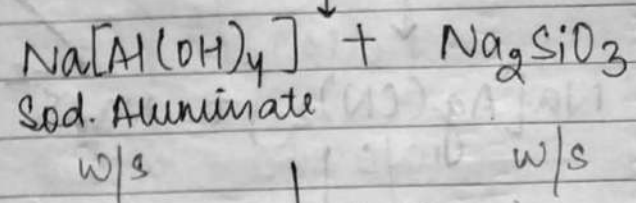 Na[Al(OH)4] + Na2SiO3
Sod. Aluminate
W/s W/s